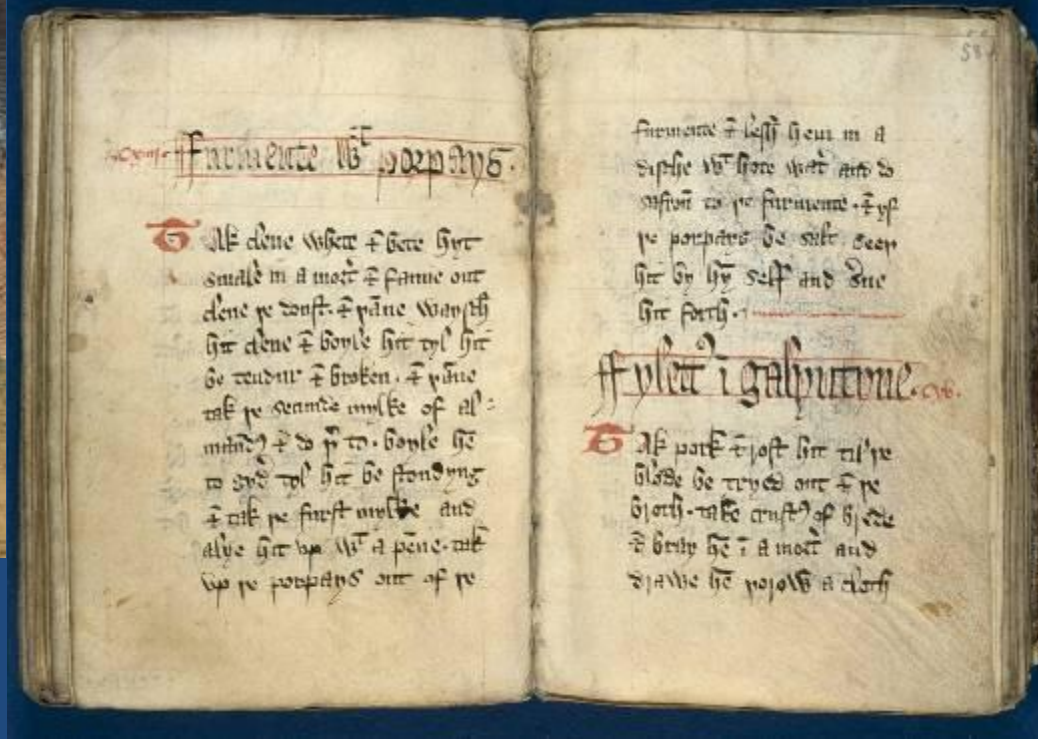 ffurmente wt porpays.
Tak clene whete & bete hyt
smale in a mortʳ & fanne out
clene þe doust. & þāne waysch
hit clene & boyle hit tyl hit
be tendur & broken. & þāne
tak þe secunde mylke of al-
mandꝭ & do þʳ to. boyle hē
to gydʳ tyl hit be stondyng
& tak þe furst mylke and
alye hit up wt a pēne. tak
up þe porpays out of þe
furmente & lesch hem in a
disshe wt hote watʳ and do
safron to þe furmente. & yf
þe porpays be salt seeþ
hit by hȳ self and sʳue
hit forth.
ffylettꝭ ī galyntyne. xv.
Tak pork & rost hit til þe
blode be tryed out & þe
broth. take crustꝭ of brede
& bray hē ī a mortʳ and
drawe hē þorow a cloth